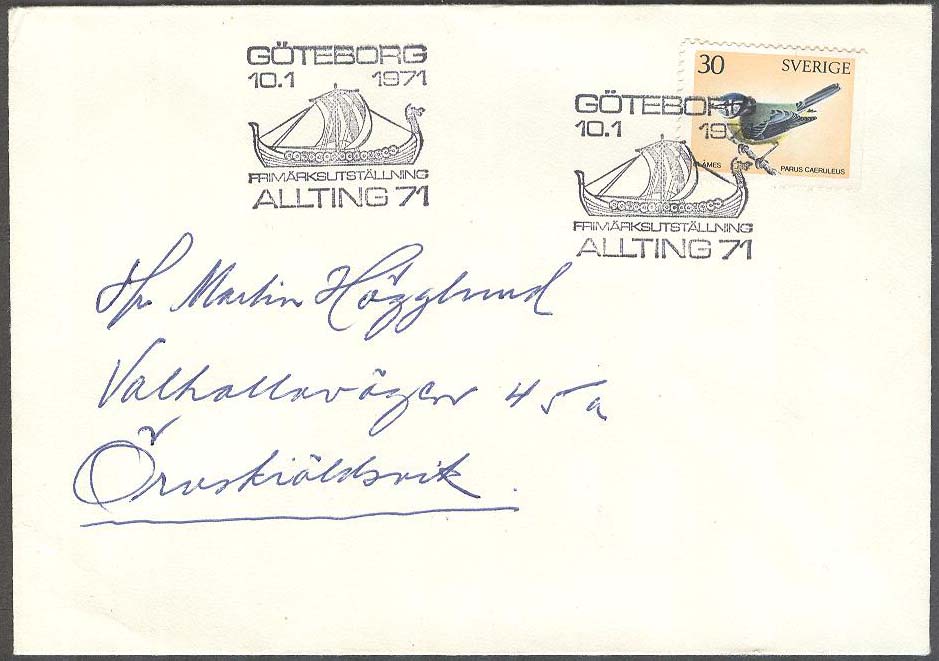 GÖTEBORG
10.1 1971
FRIMÄRKSUTSTÄLLNING
ALLTING 71
30 SVERIGE
PARUS CAERULEUS
GÖTEBORG
10.1 1971
FRIMÄRKSUTSTÄLLNING
ALLTING 71
Hr Martin Högglund
Valhallavägen 45a
Örnskiöldsvik